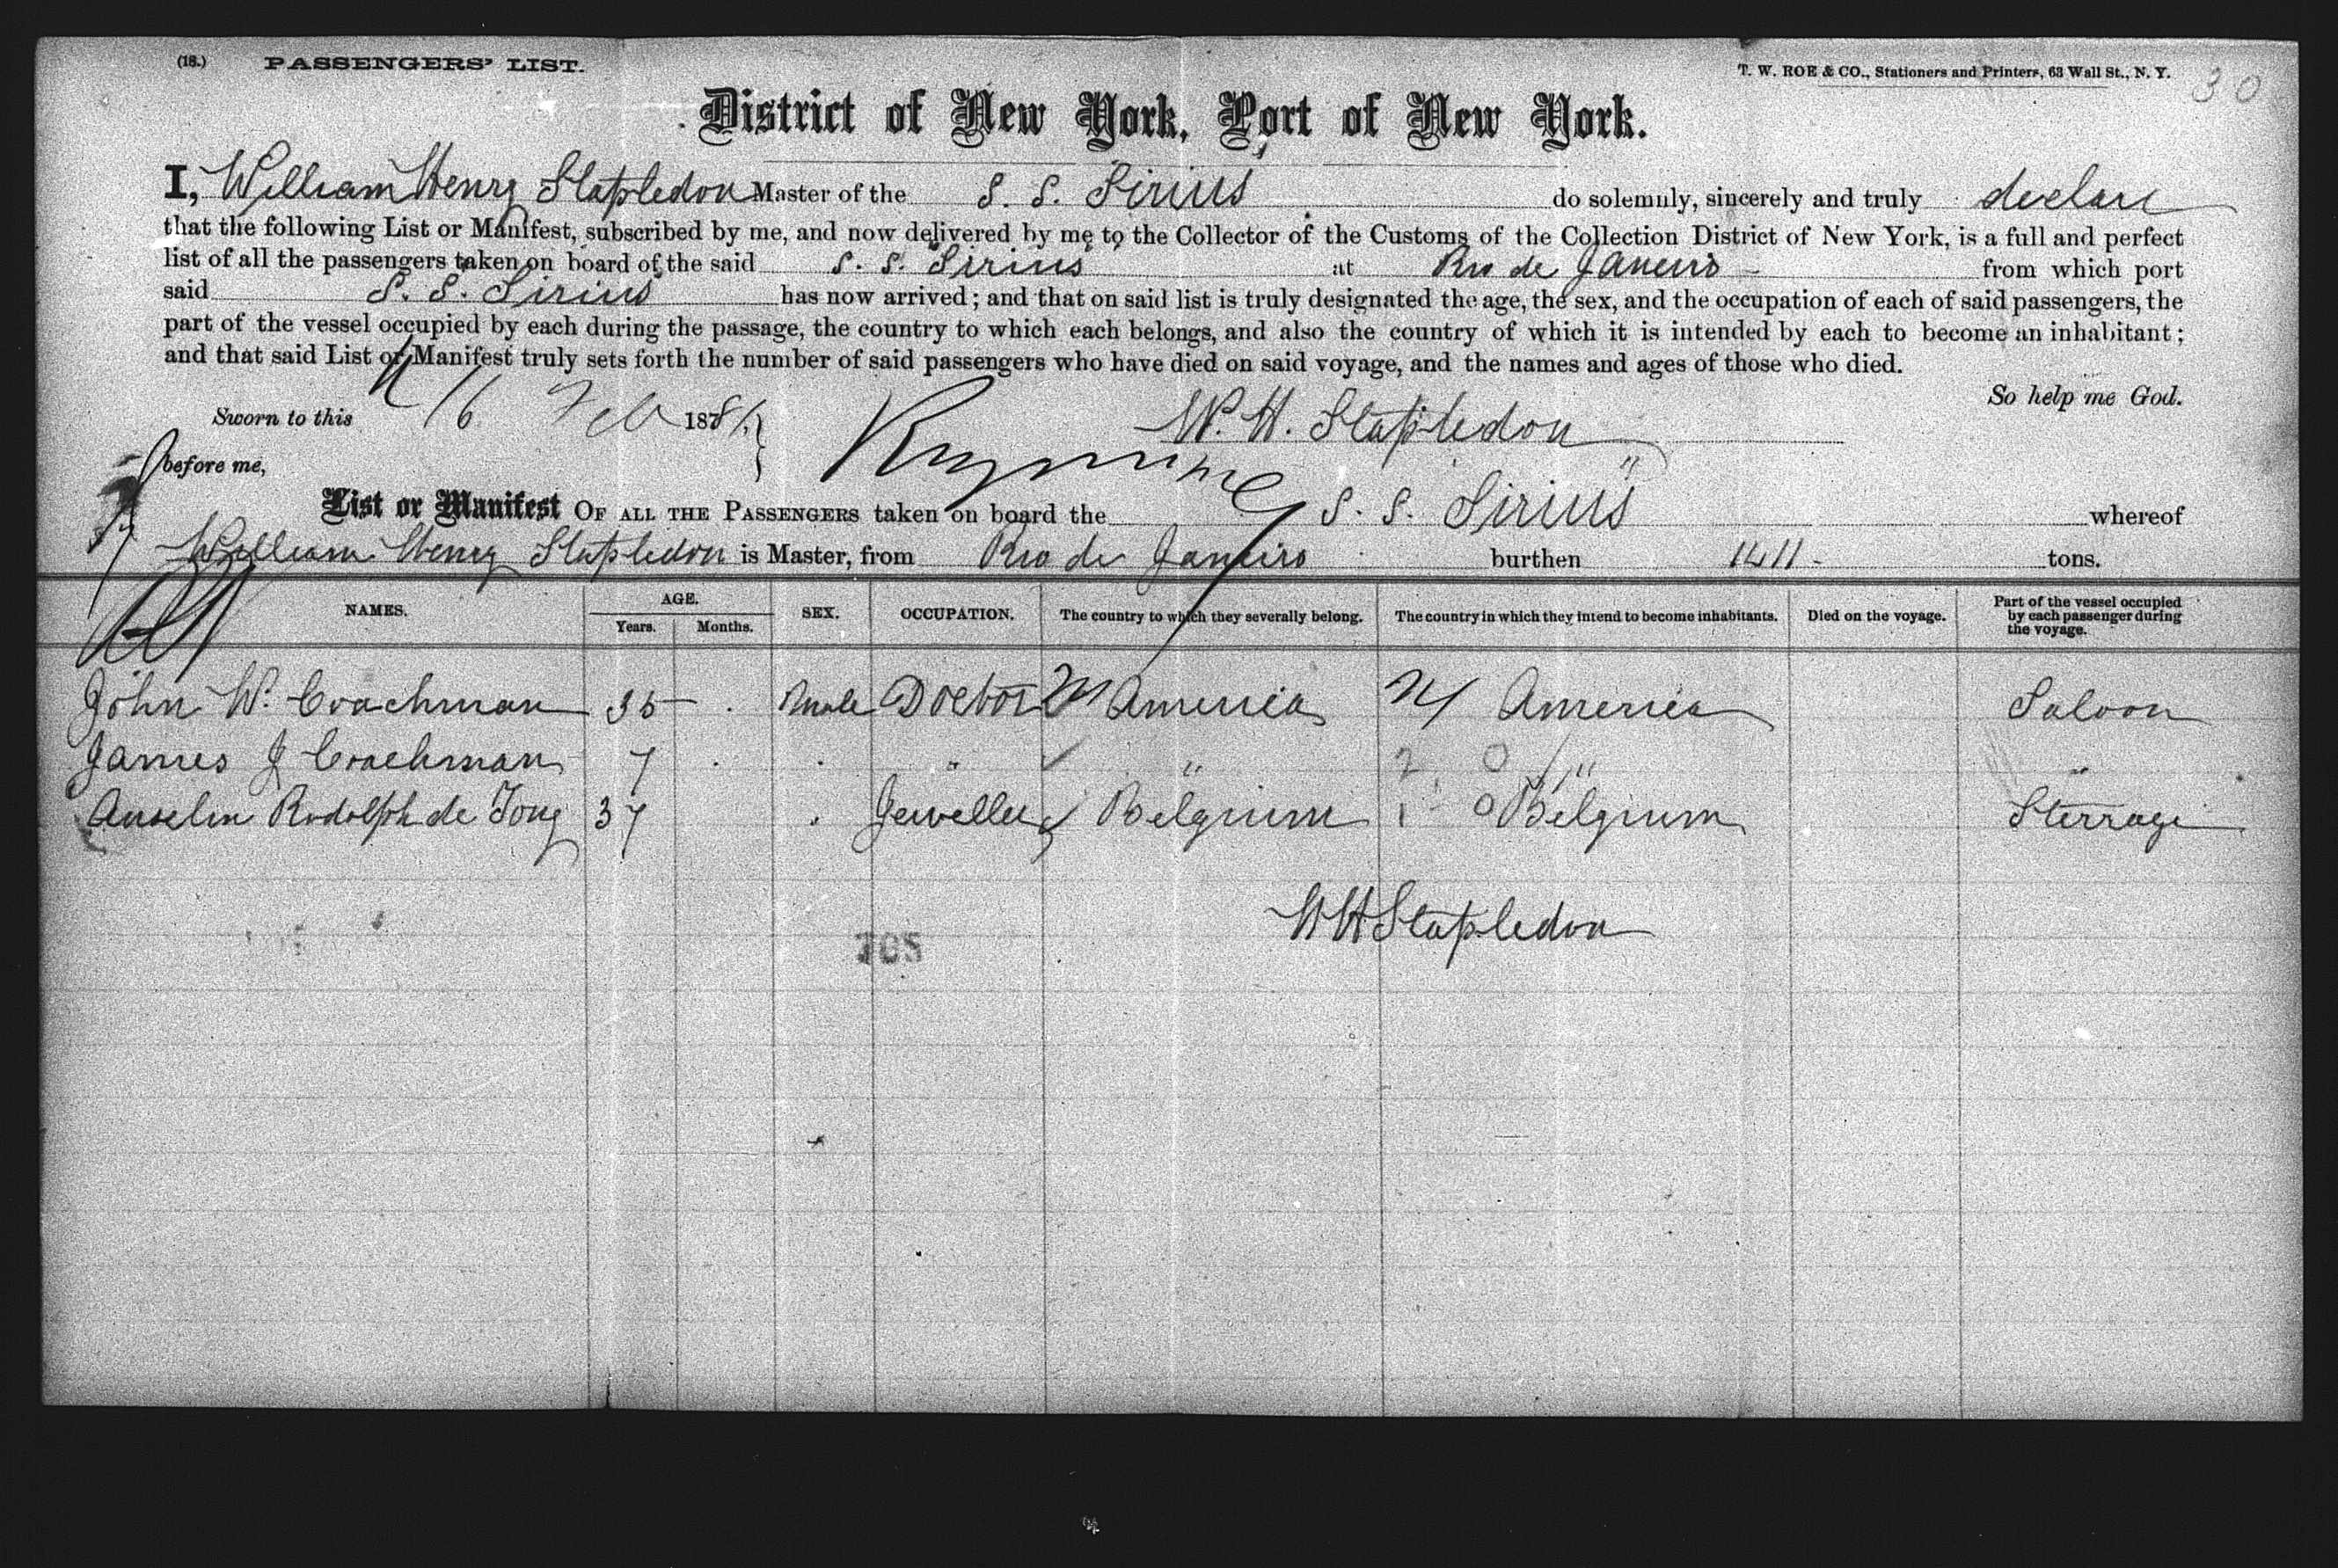 (18.) PASSENGERS' LIST.
T. W. ROE & CO., Stationers and Printers, 63 Wall St., N. Y.
30
District of New York, Port of New York.
I, William Henry Stapledon Master of the S. S. Sirius do solemnly, sincerely and truly declare
that the following List or Manifest, subscribed by me, and now delivered by me to the Collector of the Customs of the Collection District of New York, is a full and perfect
list of all the passengers taken on board of the said S. S. Sirius at Rio de Janeiro from which port
said S. S. Sirius has now arrived; and that on said list is truly designated the age, the sex, and the occupation of each of said passengers, the
part of the vessel occupied by each during the passage, the country to which each belongs, and also the country of which it is intended by each to become an inhabitant;
and that said List or Manifest truly sets forth the number of said passengers who have died on said voyage, and the names and ages of those who died.
So help me God.
Sworn to this 16 Feb 188
W. H. Stapledon
before me,
List or Manifest OF ALL THE PASSENGERS taken on board the S. S. Sirius whereof
William Henry Stapledon is Master, from Rio de Janeiro burthen 1411 tons.
NAMES. AGE. Years. Months. SEX. OCCUPATION. The country to which they severally belong. The country in which they intend to become inhabitants. Died on the voyage. Part of the vessel occupied by each passenger during the voyage.
John W. Coachman 35 Male Doctor N America N America Saloon
James J Coachman 7 " " " "
Anselm Rodolph de Jong 37 Jeweller Belgium Belgium Sterrage
WH Stapledon